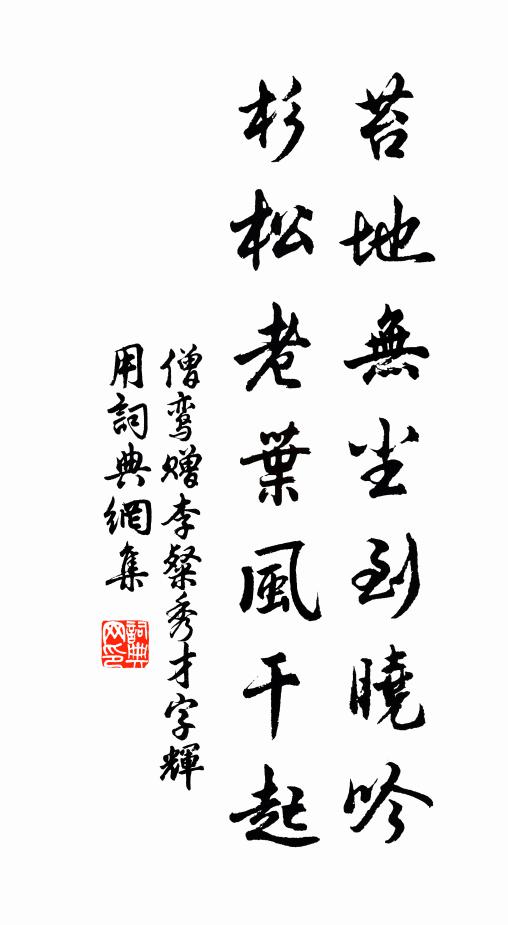 苔地無尘到曉吟
杉松老葉風干起
僧鸾贈李粲秀才字輝
用詞典網集
詞典网印